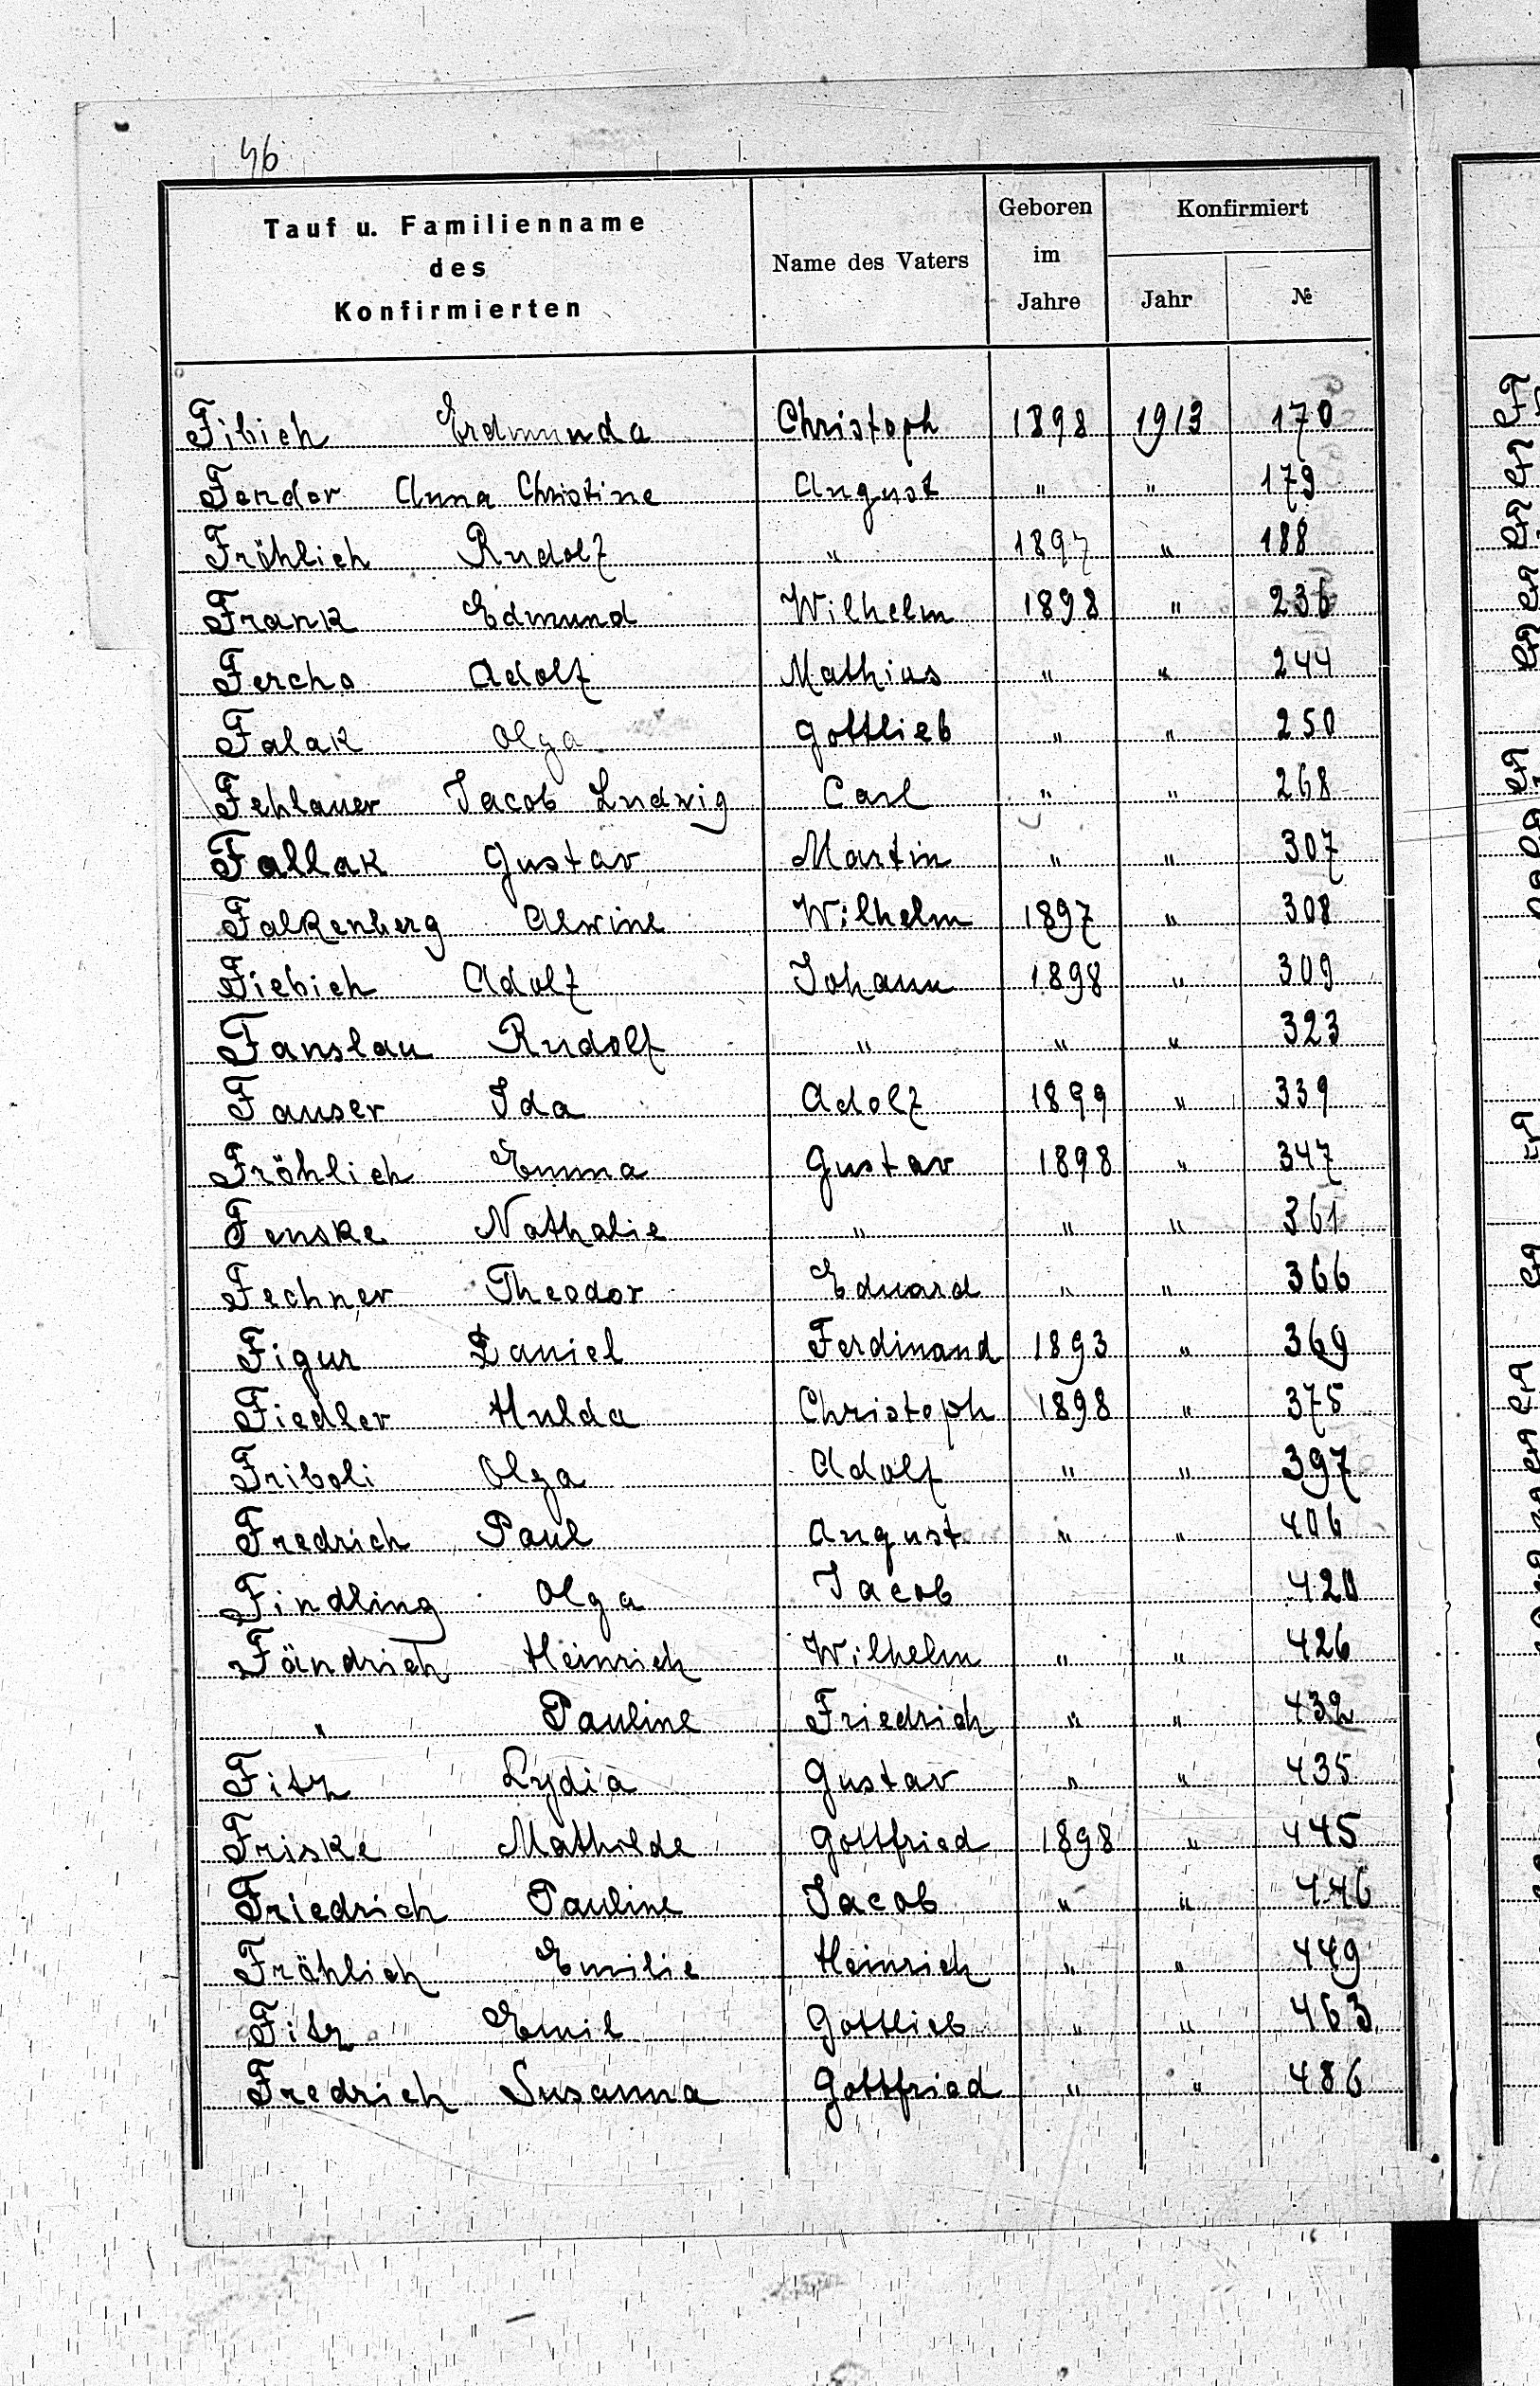 46
Tauf u. Familienname des Konfirmierten | Name des Vaters | Geboren im Jahre | Konfirmiert Jahr | №
Fibich Erdmunda Christoph 1898 1913 170
Fender Anna Christine August " " 179
Fröhlich Rudolf " 1897 " 188
Frank Edmund Wilhelm 1898 " 236
Fercho Adolf Mathias " " 244
Falak Olga Gottlieb " " 250
Fehlauer Jacob Ludwig Carl " " 268
Fallak Gustav Martin " " 307
Falkenberg Alwine Wilhelm 1897 " 308
Fiebich Adolf Johann 1898 " 309
Fanslau Rudolf " " " 323
Fauser Ida Adolf 1899 " 339
Fröhlich Emma Gustav 1898 " 347
Fenske Nathalie " " " 361
Fechner Theodor Eduard " " 366
Figur Daniel Ferdinand 1893 " 369
Fiedler Hulda Christoph 1898 " 375
Friboli Olga Adolf " " 397
Fredrich Paul August " " 406
Findling Olga Jacob 420
Fändrich Heinrich Wilhelm " " 426
" Pauline Friedrich " " 432
Fitz Lydia Gustav " " 435
Friske Mathilde Gottfried 1898 " 445
Friedrich Pauline Jacob " " 446
Fröhlich Emilie Heinrich " " 449
Fitz Emil Gottlieb " " 463
Fredrich Susanna Gottfried " " 486